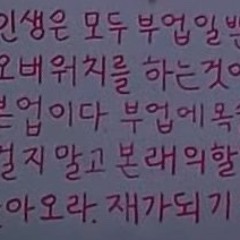 인생은 모두 부업일뿐
오버워치를 하는것이
본업이다 부업에 목숨
걸지 말고 본래의 할
돌아오라. 재가되기